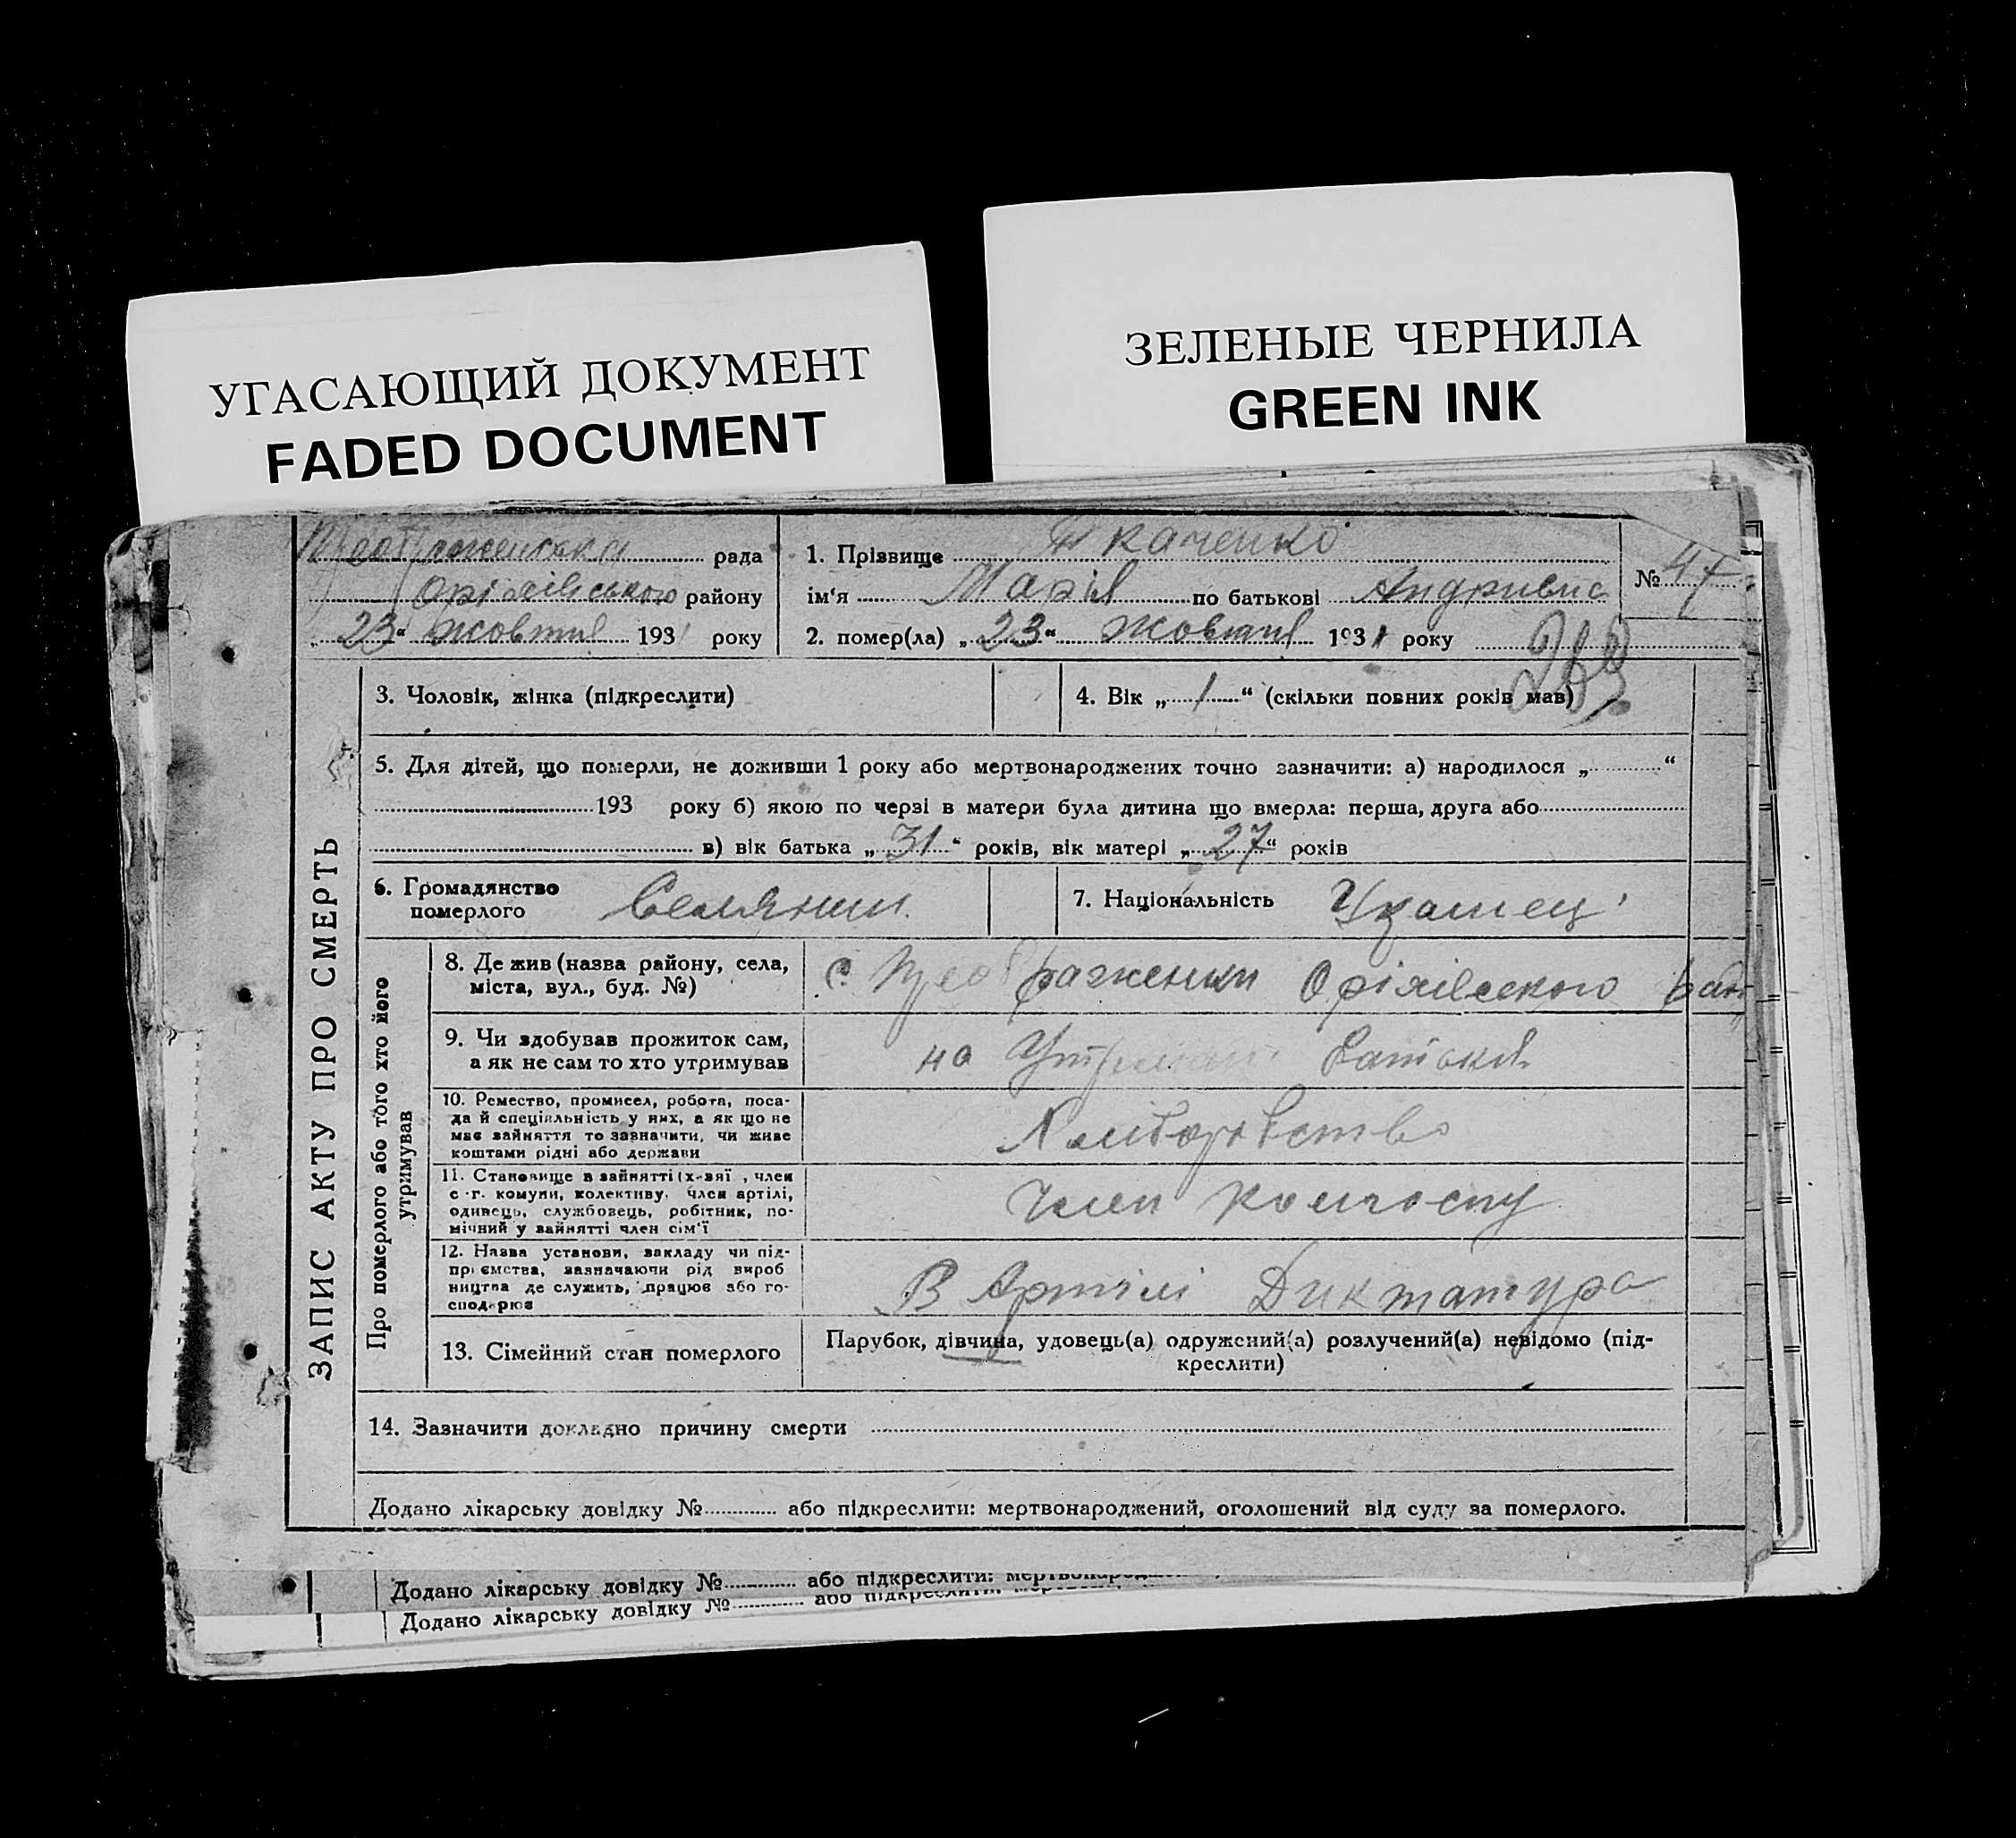 УГАСАЮЩИЙ ДОКУМЕНТ
FADED DOCUMENT
ЗЕЛЕНЫЕ ЧЕРНИЛА
GREEN INK
рада
району
„ 23 “ жовтня 1931 року
1. Прізвище Ткаченко
ім‘я Марія по батькові Андривна
№ 47
2. помер(ла) „ 23 “ жовтня 1931 року
ЗАПИС АКТУ ПРО СМЕРТЬ
3. Чоловік, жінка (підкреслити)
4. Вік „ 1 “ (скільки повних років мав)
5. Для дітей, що померли, не доживши 1 року або мертвонароджених точно зазначити: а) народилося „ “
193 року б) якою по черзі в матери була дитина що вмерла: перша, друга або
в) вік батька „ 31 “ років, вік матері „ 27 “ років
6. Громадянство
померлого
Селянин.
7. Національність
Україн
Про померлого або того хто його
утримував
8. Де жив (назва району, села,
міста, вул., буд. №)
с. Преображенки Оріхівського
9. Чи здобував прожиток сам,
а як не сам то хто утримував
на Утриман батька
10. Ремество, промисел, робота, поса-
да й спеціяльність у них, а як що не
має зайняття то зазначити, чи живе
коштами рідні або держави
Хліборобство
11. Становище в зайнятті (х-вяї , член
с-г. комуни, колективу, член артілі,
одинець, службовець, робітник, по-
мічний у зайнятті член сім‘ї
Член колгоспу
12. Назва установи, закладу чи під-
приємства, зазначаючи рід вироб
ництва де служить, працює або го-
сподарює
В Артілі Диктатура
13. Сімейний стан померлого
Парубок, дівчина, удовець(а) одружений(а) розлучений(а) невідомо (під-
креслити)
14. Зазначити докладно причину смерти
Додано лікарську довідку № або підкреслити: мертвонароджений, оголошений від суду за померлого.
Додано лікарську довідку № або підкреслити:
Додано лікарську довідку № або підкреслити: